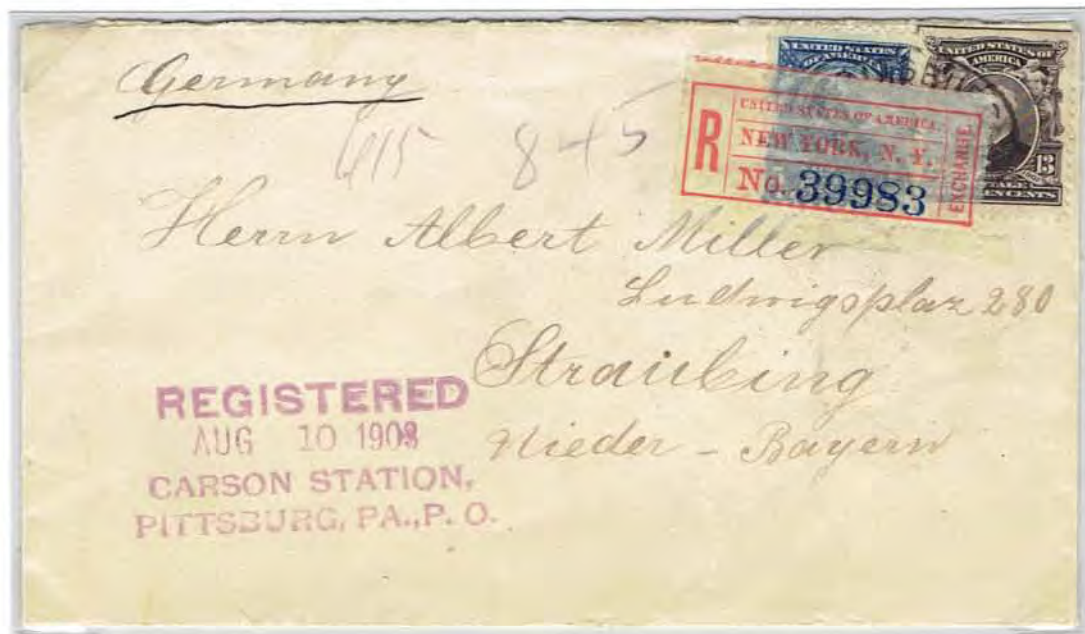 Germany
UNITED STATES
OF AMERICA
UNITED STATES OF
AMERICA
13
CENTS
R
UNITED STATES OF AMERICA.
NEW YORK, N. Y.
No. 39983
EXCHANGE.
8 45
Herrn Albert Miller
Ludwigsplaz 280
Straubing
Nieder - Bayern
REGISTERED
AUG 10 1908
CARSON STATION,
PITTSBURG, PA., P. O.